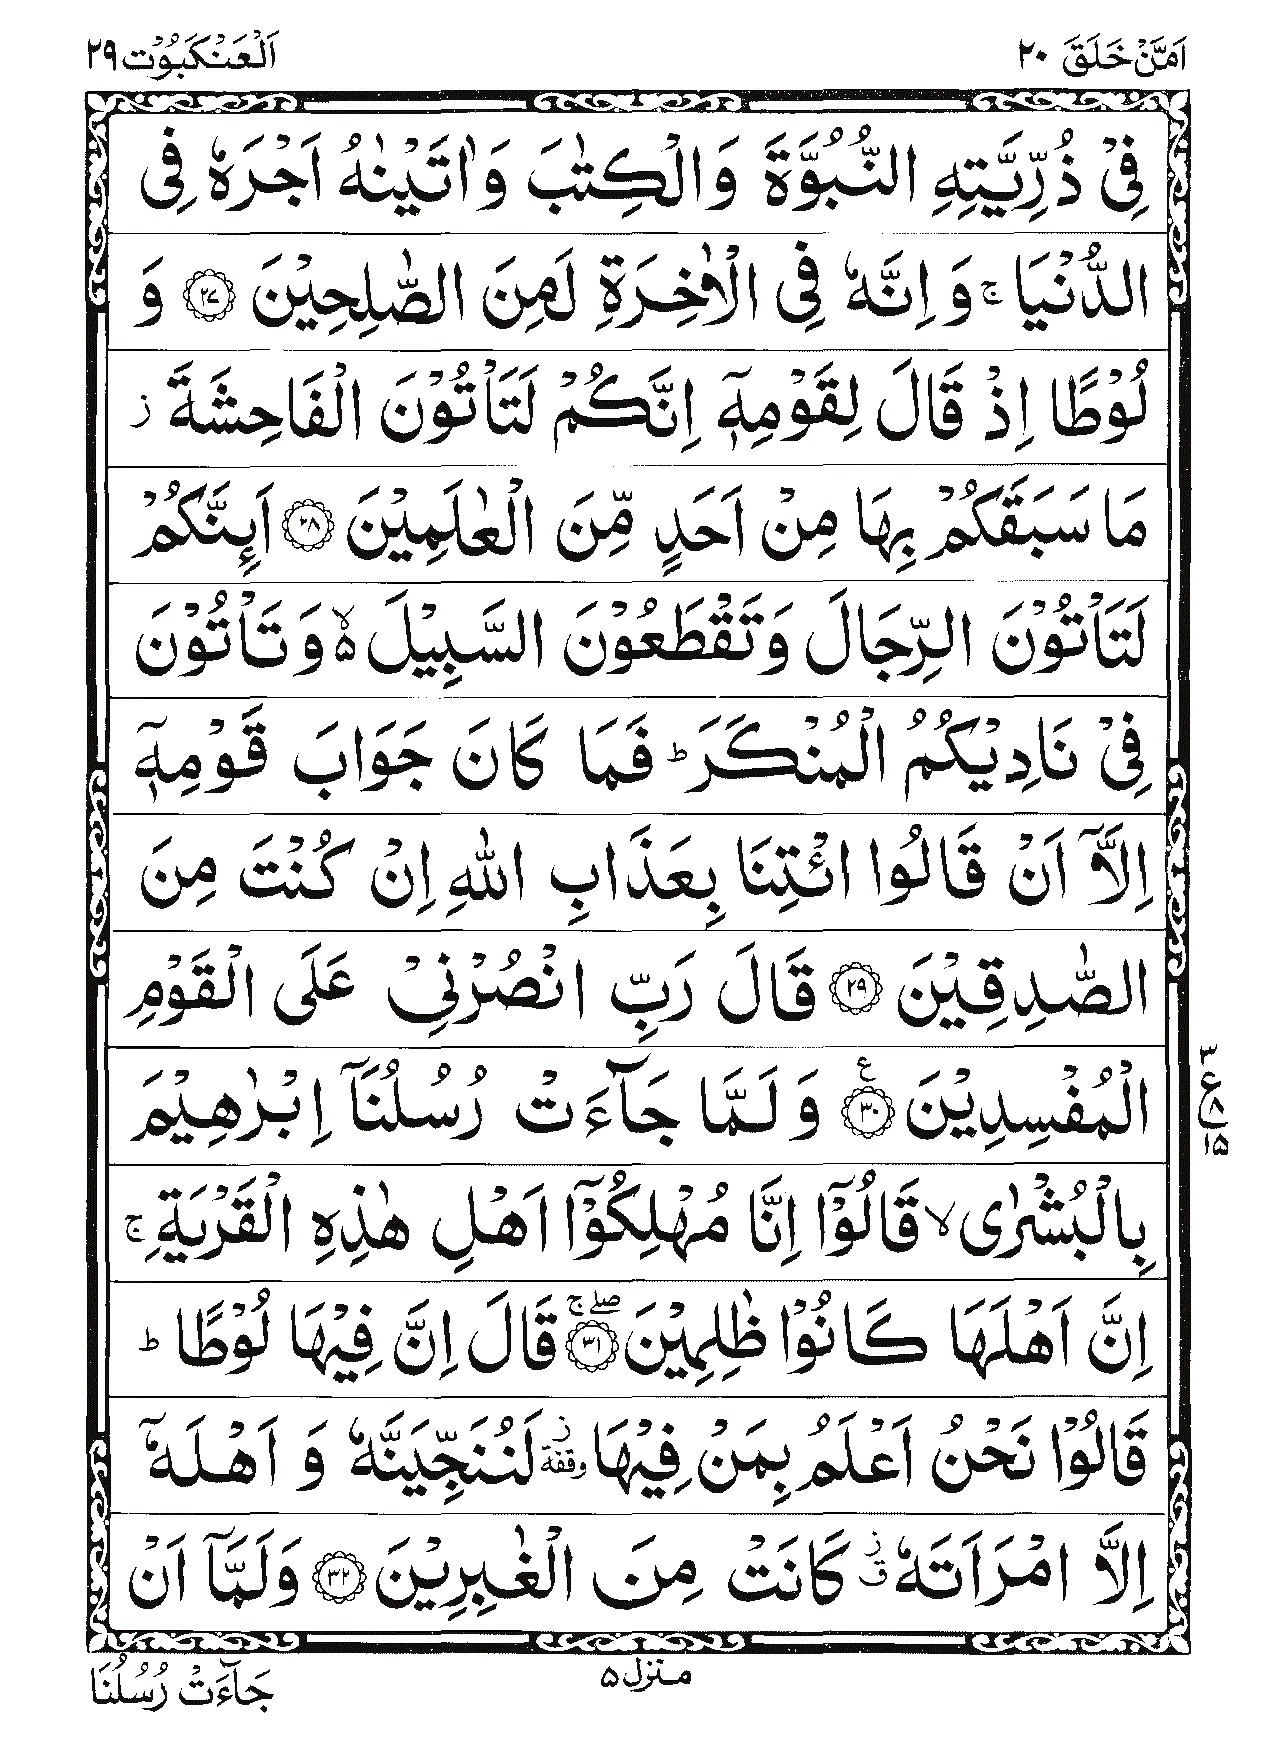 اَمَّنْ خَلَقَ ٢٠
اَلْعَنْكَبُوْت ٢٩
فِیْ ذُرِّیَّتِهِ النُّبُوَّةَ وَالْكِتٰبَ وَاٰتَیْنٰهُ اَجْرَهٗ فِی
الدُّنْیَا ۚ وَاِنَّهٗ فِی الْاٰخِرَةِ لَمِنَ الصّٰلِحِیْنَ ﴿۲۷﴾ وَ
لُوْطًا اِذْ قَالَ لِقَوْمِهٖۤ اِنَّكُمْ لَتَاْتُوْنَ الْفَاحِشَةَ ز
مَا سَبَقَكُمْ بِهَا مِنْ اَحَدٍ مِّنَ الْعٰلَمِیْنَ ﴿۲۸﴾ اَىِٕنَّكُمْ
لَتَاْتُوْنَ الرِّجَالَ وَتَقْطَعُوْنَ السَّبِیْلَ ۵ۙ وَتَاْتُوْنَ
فِیْ نَادِیْكُمُ الْمُنْكَرَ ؕ فَمَا كَانَ جَوَابَ قَوْمِهٖۤ
اِلَّاۤ اَنْ قَالُوا ائْتِنَا بِعَذَابِ اللّٰهِ اِنْ كُنْتَ مِنَ
الصّٰدِقِیْنَ ﴿۲۹﴾ قَالَ رَبِّ انْصُرْنِیْ عَلَی الْقَوْمِ
الْمُفْسِدِیْنَ ﴿۳۰﴾ ع وَ لَمَّا جَآءَتْ رُسُلُنَاۤ اِبْرٰهِیْمَ
بِالْبُشْرٰی ۙ قَالُوْۤا اِنَّا مُهْلِكُوْۤا اَهْلِ هٰذِهِ الْقَرْیَةِ ۚ
اِنَّ اَهْلَهَا كَانُوْا ظٰلِمِیْنَ ﴿۳۱﴾ ۖۚ قَالَ اِنَّ فِیْهَا لُوْطًا ؕ
قَالُوْا نَحْنُ اَعْلَمُ بِمَنْ فِیْهَا ز وقفة لَنُنَجِّیَنَّهٗ وَ اَهْلَهٗۤ
اِلَّا امْرَاَتَهٗ ز ق كَانَتْ مِنَ الْغٰبِرِیْنَ ﴿۳۲﴾ وَلَمَّاۤ اَنْ
٣
ع
٨
١٥
منزل ۵
جَآءَتْ رُسُلُنَا